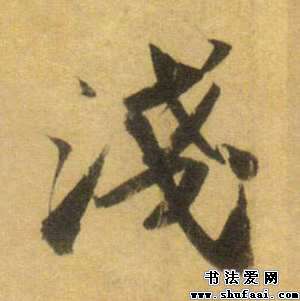 淺
书法爱网
www.shufaai.com